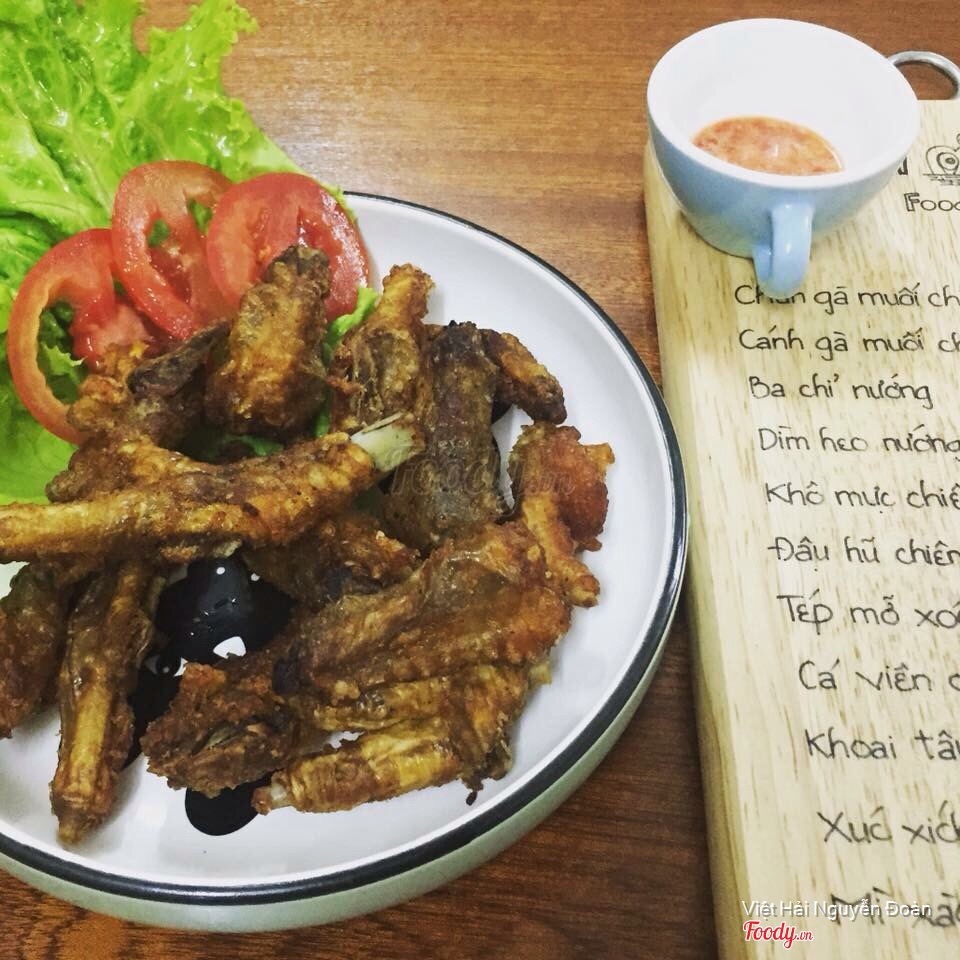 Food
Chân gà muối ch
Cánh gà muối ch
Ba chỉ nướng
Dĩm heo nướng
Khô mực chiê
Đậu hũ chiên
Tép mỡ xo
Cá viên c
Khoai tâ
Xúc xích
Mì xà
Foody.vn
Việt Hải Nguyễn Đoàn
Foody.vn